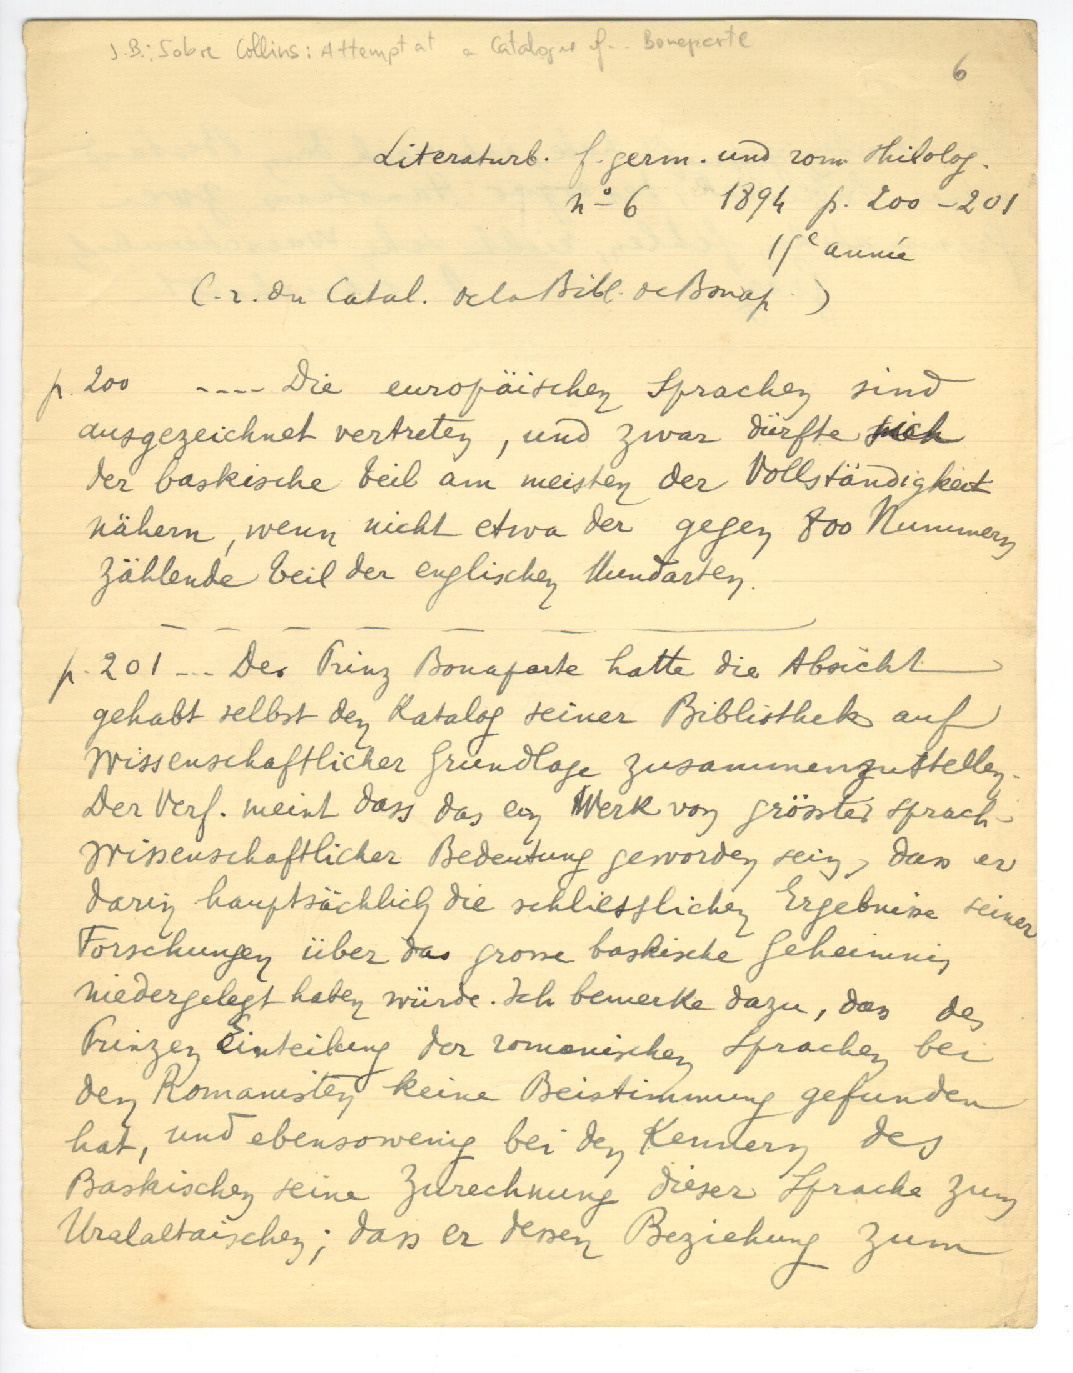 J.B.: Sobre Collins: Attempt at a Catalogue of.. Bonaparte
6
Literaturb. f. germ. und rom. Philolog.
nº 6 1894 p. 200 – 201
15e année
(C.r. du Catal. de la Bibl. de Bonap.)
p. 200 ---- Die europäischen Sprachen sind
ausgezeichnet vertreten, und zwar dürfte sich
der baskische Teil am meisten der Vollständigkeit
nähern, wenn nicht etwa der gegen 800 Nummern
zählende Teil der englischen Mundarten.
p. 201 --- Der Prinz Bonaparte hatte die Absicht
gehabt selbst den Katalog seiner Bibliothek auf
wissenschaftlicher Grundlage zusammenzustellen.
Der Verf. meint dass das ein Werk von grösster sprach-
wissenschaftlicher Bedeutung geworden sein, dass er
darin hauptsächlich die schliesslichen Ergebnisse seiner
Forschungen über das grosse baskische Geheimnis
niedergelegt haben würde. Ich bemerke dazu, dass des
Prinzen Einteilung der romanischen Sprachen bei
den Romanisten keine Beistimmung gefunden
hat, und ebensowenig bei den Kennern des
Baskischen seine Zurechnung dieser Sprache zum
Uralaltaischen; dass er dessen Beziehung zum